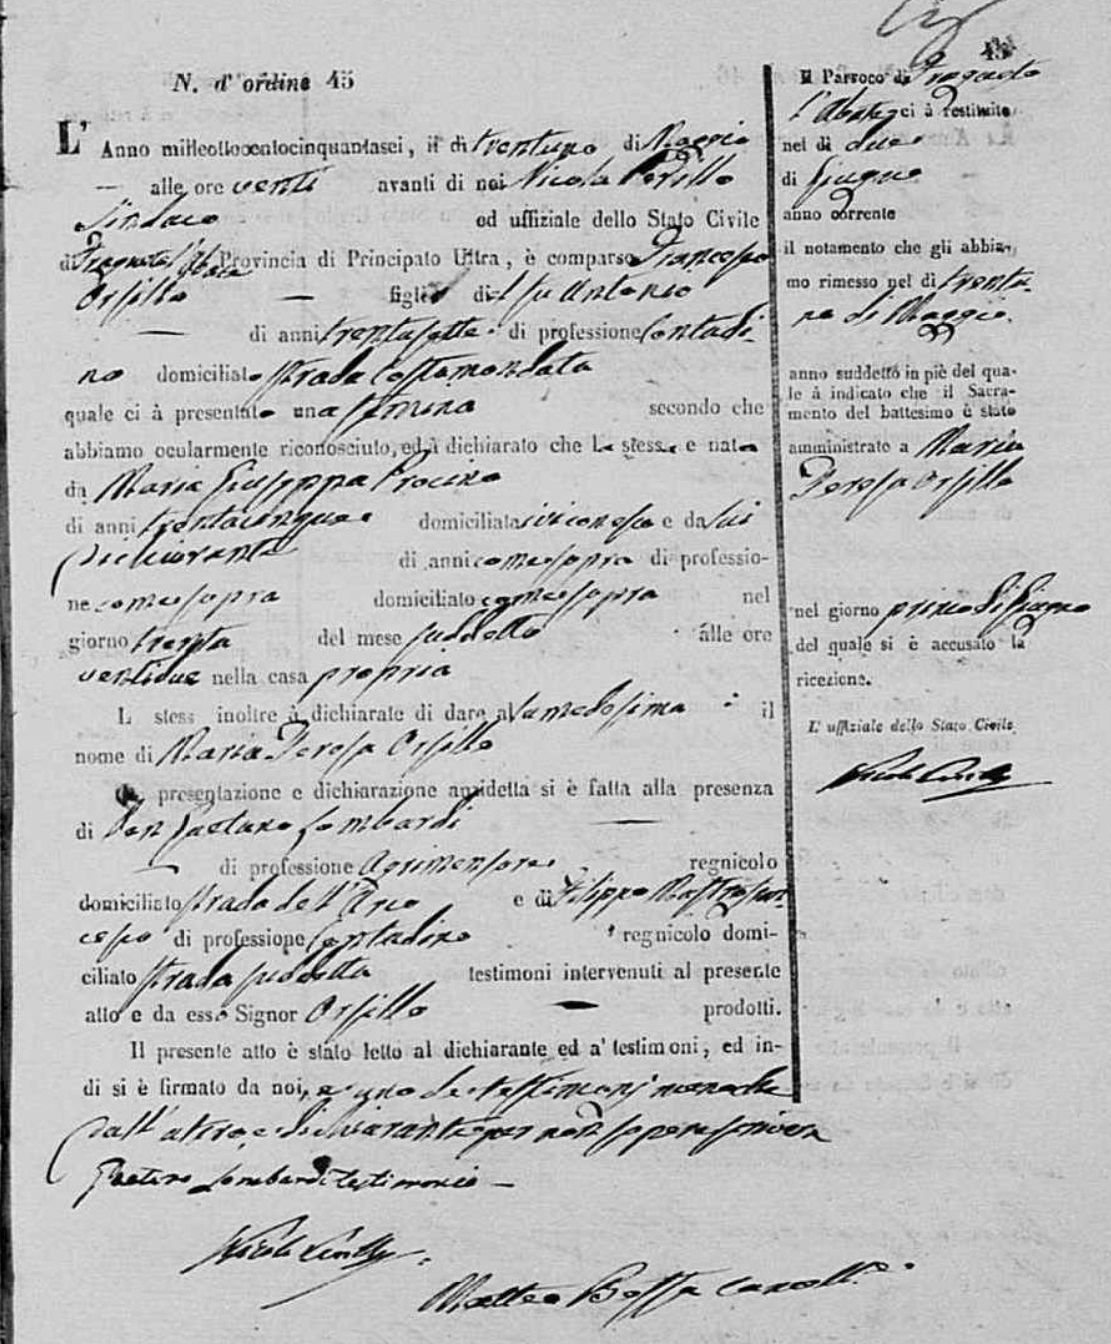 N. d'ordine 45
L'Anno milleottocentocinquantasei, il dì trentuno di Maggio
— alle ore venti avanti di noi Nicola Perillo
Sindaco ed uffiziale dello Stato Civile
di Fragneto l'Abate Provincia di Principato Ultra, è comparso Francesco
Orsillo — figlio del fu Antonio
— di anni trentasette di professione Contadi-
no domiciliato strada Costamondata
quale ci à presentato una femina secondo che
abbiamo ocularmente riconosciuto, ed à dichiarato che la stessa e nata
da Maria Giuseppa Procino
di anni trentacinque domiciliata ivi con esso e da lui
dichiarante di anni come sopra di professio-
ne come sopra domiciliato come sopra nel
giorno trenta del mese suddetto alle ore
ventidue nella casa propria
L stess inoltre à dichiarato di dare alla medesima il
nome di Maria Teresa Orsillo
La presentazione e dichiarazione anzidetta si è fatta alla presenza
di Don Gaetano Lombardi —
— di professione Agrimensore regnicolo
domiciliato strada dell'Arco e di Filippo Mastrofran-
cesco di professione Contadino regnicolo domi-
ciliato strada suddetta testimoni intervenuti al presente
atto e da esso Signor Orsillo — prodotti.
Il presente atto è stato letto al dichiarante ed a' testimoni, ed in-
di si è firmato da noi, e uno de testimonj meno che
dall'altro, e dichiarante per non sapere scrivere
Gaetano Lombardi testimonio —
Nicola Perillo
Matteo Cancell.
45
Il Parroco di Fragneto
l'Abate ci à restituito
nel dì due
di Giugno
anno corrente
il notamento che gli abbia-
mo rimesso nel dì trentu-
no di Maggio
anno suddetto in piè del qua-
le à indicato che il Sacra-
mento del battesimo è stato
amministrato a Maria
Teresa Orsillo
nel giorno primo di Giugno
del quale si è accusato la
ricezione.
L'uffiziale dello Stato Civile
Nicola Perillo